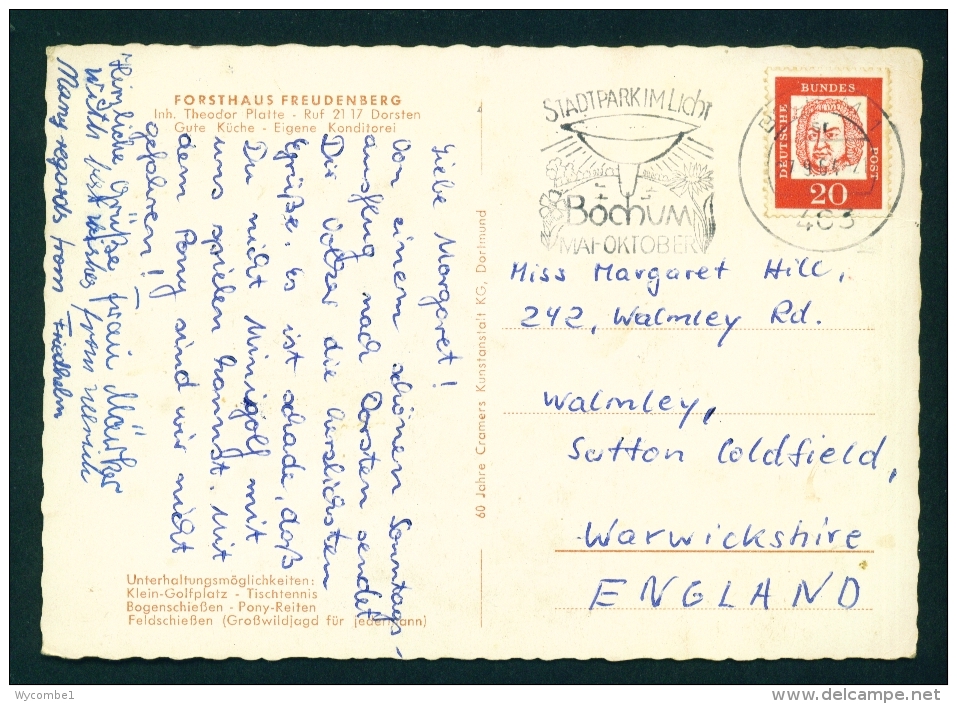 FORSTHAUS FREUDENBERG
Inh. Theodor Platte - Ruf 21 17 Dorsten
Gute Küche - Eigene Konditorei
Liebe Margaret!
Von einem schönen Sonntags-
ausflug nach Dorsten sendet
Dir Volker die herzlichsten
Grüße. Es ist schade, daß
Du nicht Minigolf mit
uns spielen kannst. Mit
dem Pony sind wir nicht
gefahren!
Herzliche Grüße Frau Märker
With best wishes from
Many regards from Friedhelm
Unterhaltungsmöglichkeiten:
Klein-Golfplatz - Tischtennis
Bogenschießen - Pony-Reiten
Feldschießen (Großwildjagd für jedermann)
60 Jahre Cramers Kunstanstalt KG, Dortmund
STADTPARK IM LICHT
BOCHUM
MAI-OKTOBER
463
DEUTSCHE
BUNDES
POST
20
Miss Margaret Hill,
242, Walmley Rd.
Walmley,
Sutton Coldfield,
Warwickshire
ENGLAND
Wycombe1
www.delcampe.net